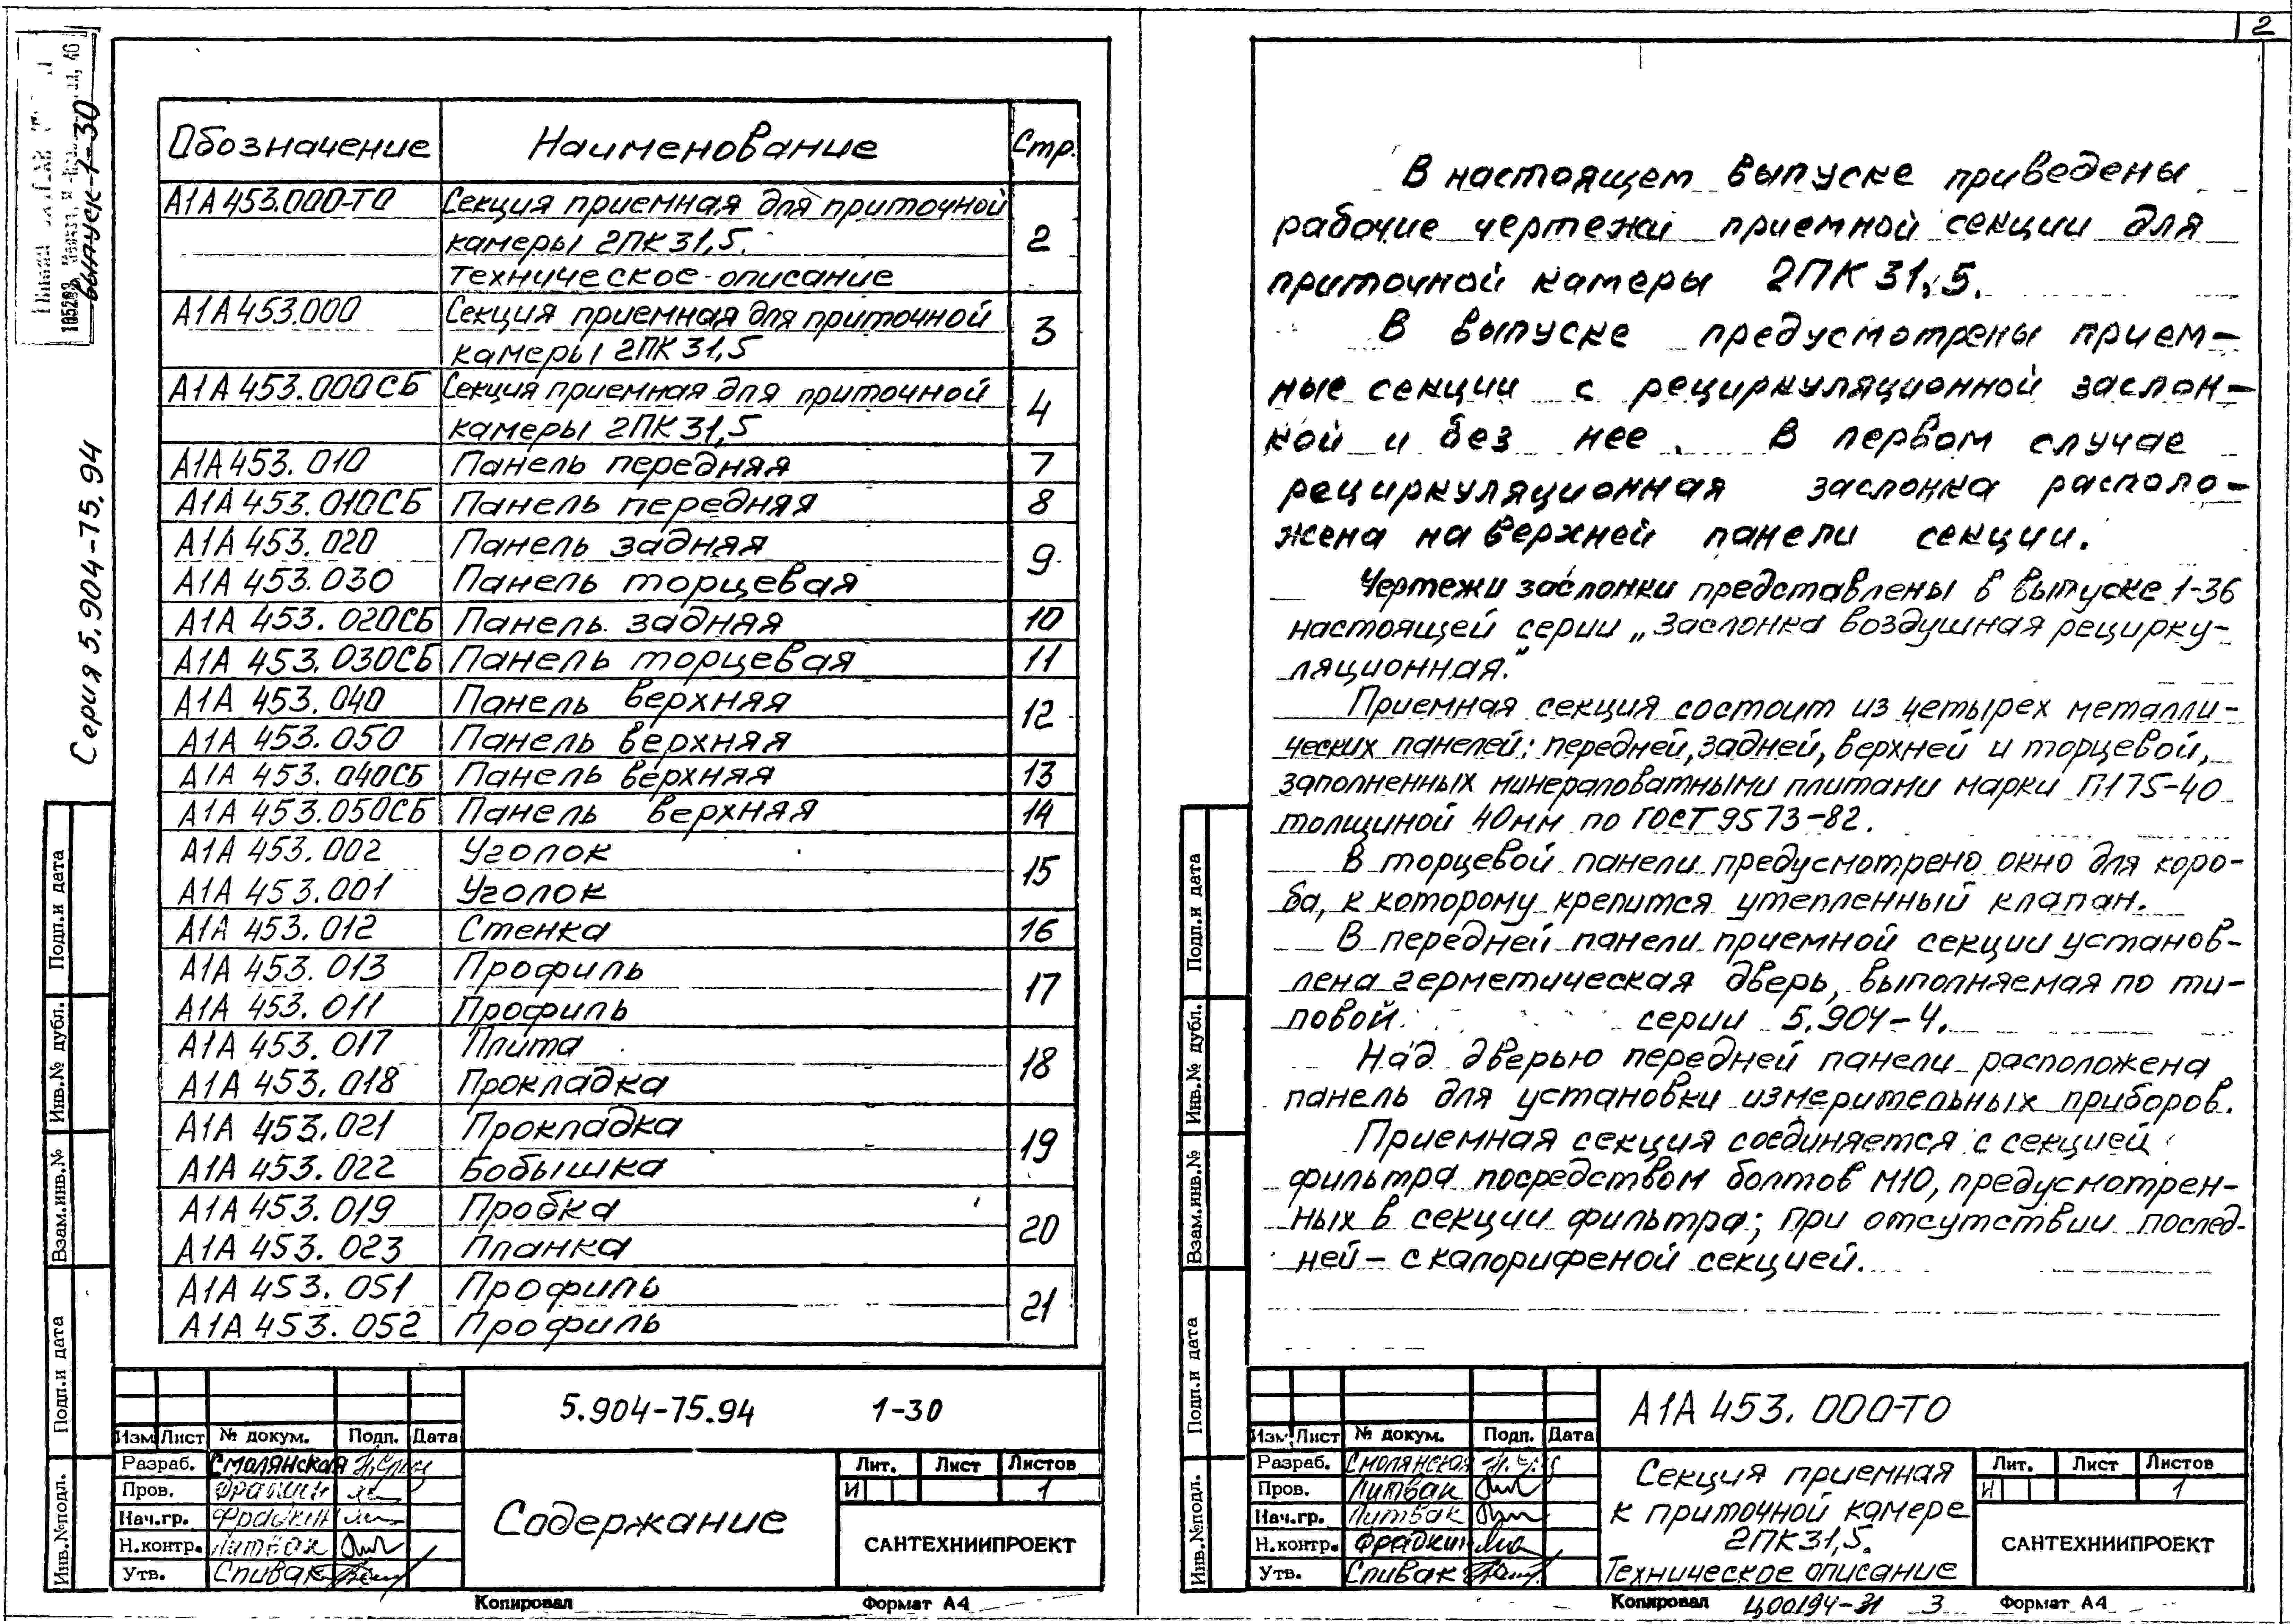 2
выпуск 1-30
Серия 5.904-75.94
Обозначение Наименование Стр.
А1А453.000-ТО Секция приемная для приточной
камеры 2ПК31,5. 2
Техническое описание
А1А453.000 Секция приемная для приточной 3
камеры 2ПК31,5
А1А453.000СБ Секция приемная для приточной 4
камеры 2ПК31,5
А1А453.010 Панель передняя 7
А1А453.010СБ Панель передняя 8
А1А453.020 Панель задняя 9
А1А453.030 Панель торцевая
А1А 453.020СБ Панель задняя 10
А1А 453.030СБ Панель торцевая 11
А1А 453.040 Панель верхняя 12
А1А 453.050 Панель верхняя
А1А 453.040СБ Панель верхняя 13
А1А 453.050СБ Панель верхняя 14
А1А 453.002 Уголок 15
А1А 453.001 Уголок
А1А 453.012 Стенка 16
А1А 453.013 Профиль 17
А1А 453.011 Профиль
А1А 453.017 Плита 18
А1А 453.018 Прокладка
А1А 453.021 Прокладка 19
А1А 453.022 Бобышка
А1А 453.019 Пробка 20
А1А 453.023 Планка
А1А 453.051 Профиль 21
А1А 453.052 Профиль
Подп.и дата
Инв.№ дубл.
Взам.инв.№
Подп.и дата
Инв.№подл.
5.904-75.94 1-30
Изм Лист № докум. Подп. Дата
Разраб. Смолянская
Пров. Фрадкин
Нач.гр. Фрадкин
Н.контр. Литвак
Утв. Спивак
Содержание
Лит. Лист Листов
И 1
САНТЕХНИИПРОЕКТ
Копировал Формат А4
В настоящем выпуске приведены
рабочие чертежи приемной секции для
приточной камеры 2ПК31,5.
В выпуске предусмотрены прием-
ные секции с рециркуляционной заслон-
кой и без нее. В первом случае
рециркуляционная заслонка располо-
жена на верхней панели секции.
Чертежи заслонки представлены в выпуске 1-36
настоящей серии „Заслонка воздушная рецирку-
ляционная."
Приемная секция состоит из четырех металли-
ческих панелей: передней, задней, верхней и торцевой,
заполненных минераловатными плитами марки П175-40
толщиной 40мм по ГОСТ 9573-82.
В торцевой панели предусмотрено окно для коро-
ба, к которому крепится утепленный клапан.
В передней панели приемной секции установ-
лена герметическая дверь, выполняемая по ти-
повой серии 5.904-4.
Над дверью передней панели расположена
панель для установки измерительных приборов.
Приемная секция соединяется с секцией
фильтра посредством болтов М10, предусмотрен-
ных в секции фильтра; при отсутствии послед-
ней - с калорифеной секцией.
Подп.и дата
Инв.№ дубл.
Взам.инв.№
Подп.и дата
Инв.№подл.
А1А 453.000-ТО
Изм Лист № докум. Подп. Дата
Разраб. Смолянская
Пров. Литвак
Нач.гр. Литвак
Н.контр. Фрадкин
Утв. Спивак
Секция приемная
к приточной камере
2ПК31,5.
Техническое описание
Лит. Лист Листов
И 1
САНТЕХНИИПРОЕКТ
Копировал Ц00194-31 3 Формат А4